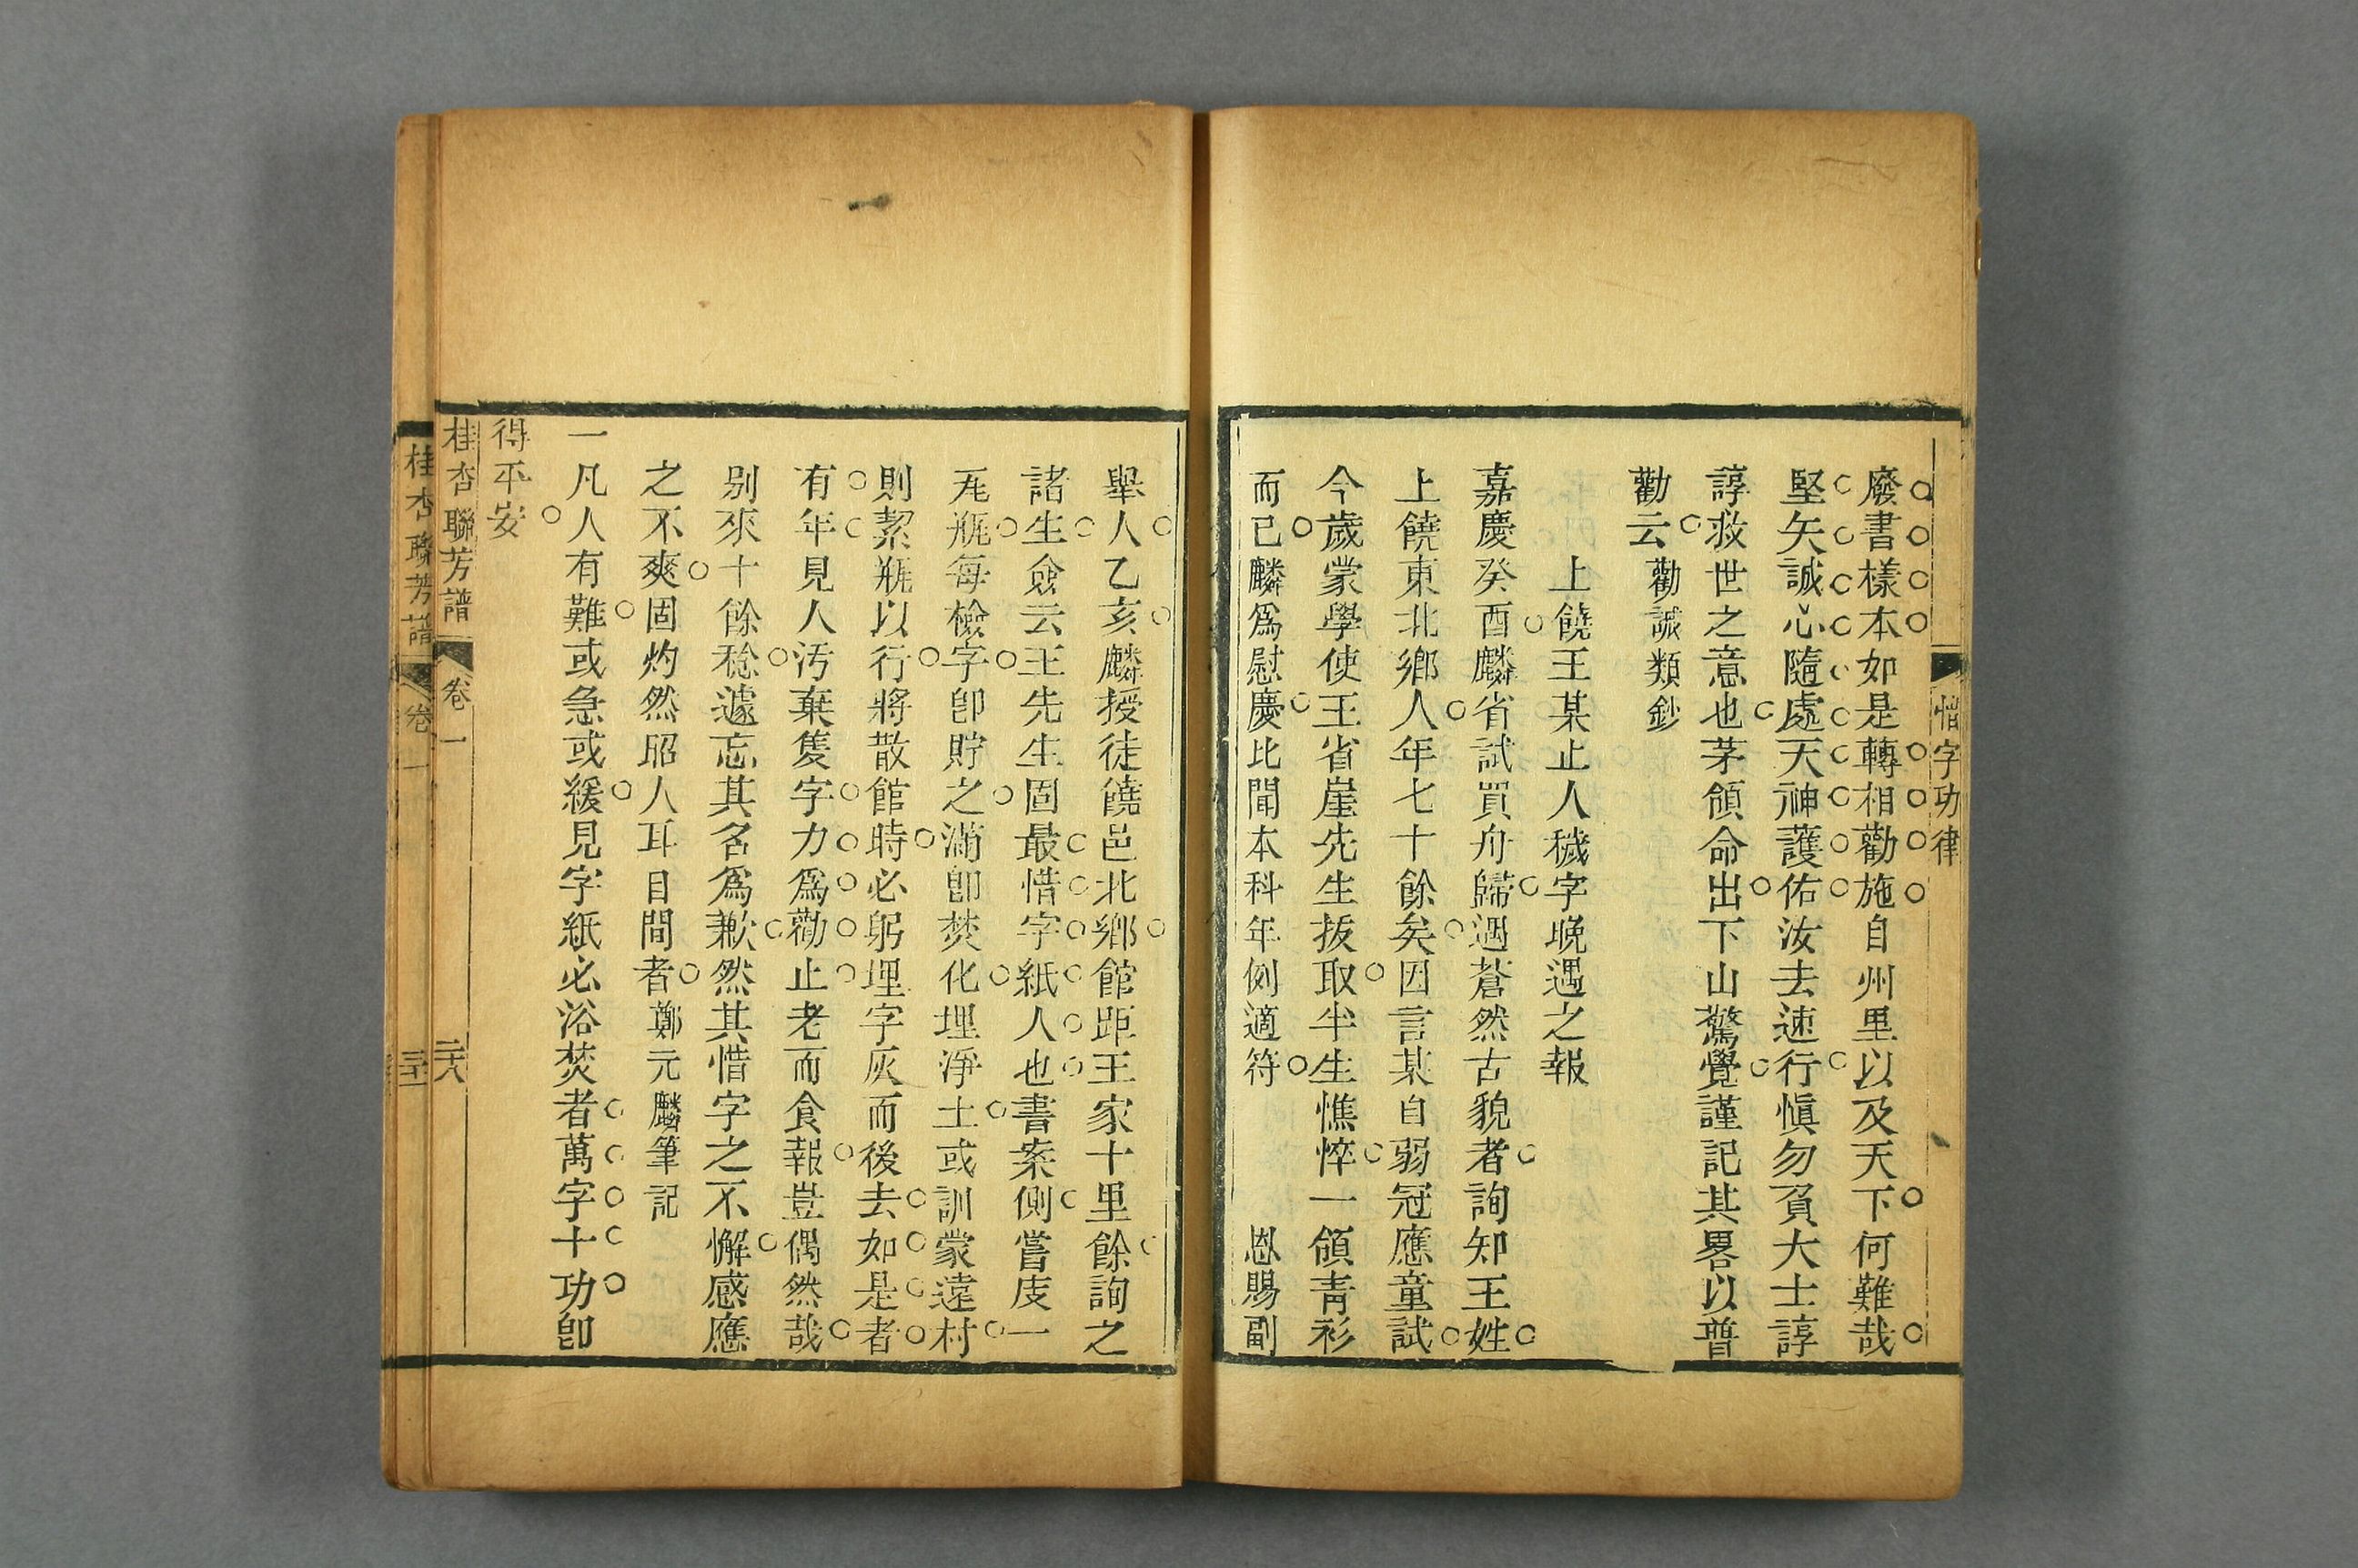 惜字功律
廢書樣本如是轉相勸施自州里以及天下何難哉
堅矢誠心隨處天神護佑汝去速行愼勿負大士諄
諄救世之意也茅領命出下山驚覺謹記其畧以普
勸云勸誡類鈔
上饒王某止人穢字晚遇之報
嘉慶癸酉麟省試買舟歸遇蒼然古貌者詢知王姓
上饒東北鄉人年七十餘矣因言某自弱冠應童試
今歲蒙學使王省崖先生拔取半生憔悴一領青衫
而已麟爲慰慶比聞本科年例適符 恩賜副
舉人乙亥麟授徒饒邑北鄉館距王家十里餘詢之
諸生僉云王先生固最惜字紙人也書案側嘗庋一
瓦瓶每檢字卽貯之滿卽焚化埋淨土或訓蒙遠村
則絜瓶以行將散館時必躬埋字灰而後去如是者
有年見人汚棄隻字力爲勸止老而食報豈偶然哉
别來十餘稔遽忘其名爲歉然其惜字之不懈感應
之不爽固灼然昭人耳目間者鄭元麟筆記
一凡人有難或急或緩見字紙必浴焚者萬字十功卽
得平安
桂杏聯芳譜 卷一 二六
桂杏聯芳譜 卷一